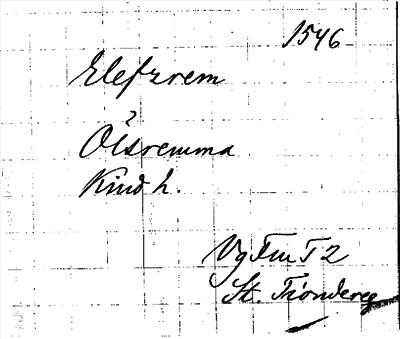 1546
Elefzrem
?
Olsremma
Kind h.
Vg Fm T 2
St. Tiondereg